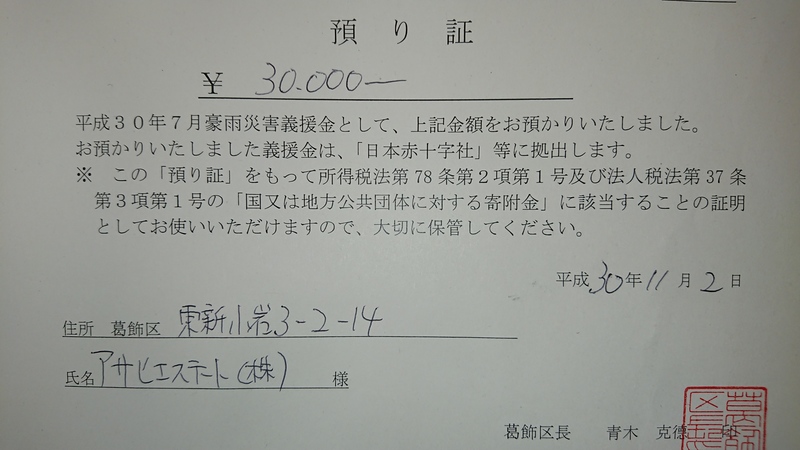 預り証
¥ 30.000―
平成30年7月豪雨災害義援金として、上記金額をお預かりいたしました。
お預かりいたしました義援金は、「日本赤十字社」等に拠出します。
※ この「預り証」をもって所得税法第78条第2項第1号及び法人税法第37条
第3項第1号の「国又は地方公共団体に対する寄附金」に該当することの証明
としてお使いいただけますので、大切に保管してください。
平成30年11月2日
住所 葛飾区 東新小岩3-2-14
氏名 アサヒエステート(株) 様
葛飾区長 青木 克德 印